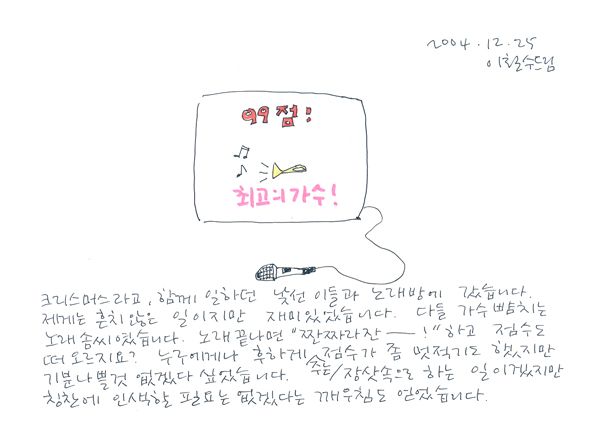 2004.12.25
이철수드림
99점!
최고의가수!
크리스마스라고, 함께 일하던 낯선 이들과 노래방에 갔습니다.
제게는 흔치않은 일이지만 재미있었습니다. 다들 가수뺨치는
노래솜씨였습니다. 노래끝나면 "짠짜라잔——!" 하고 점수도
떠오르지요? 누구에게나 후하게 점수가 좀 멋적기도 했지만
기분나쁠것 없겠다 싶었습니다. 주는/장삿속으로 하는 일이겠지만
칭찬에 인색할 필요는 없겠다는 깨우침도 얻었습니다.